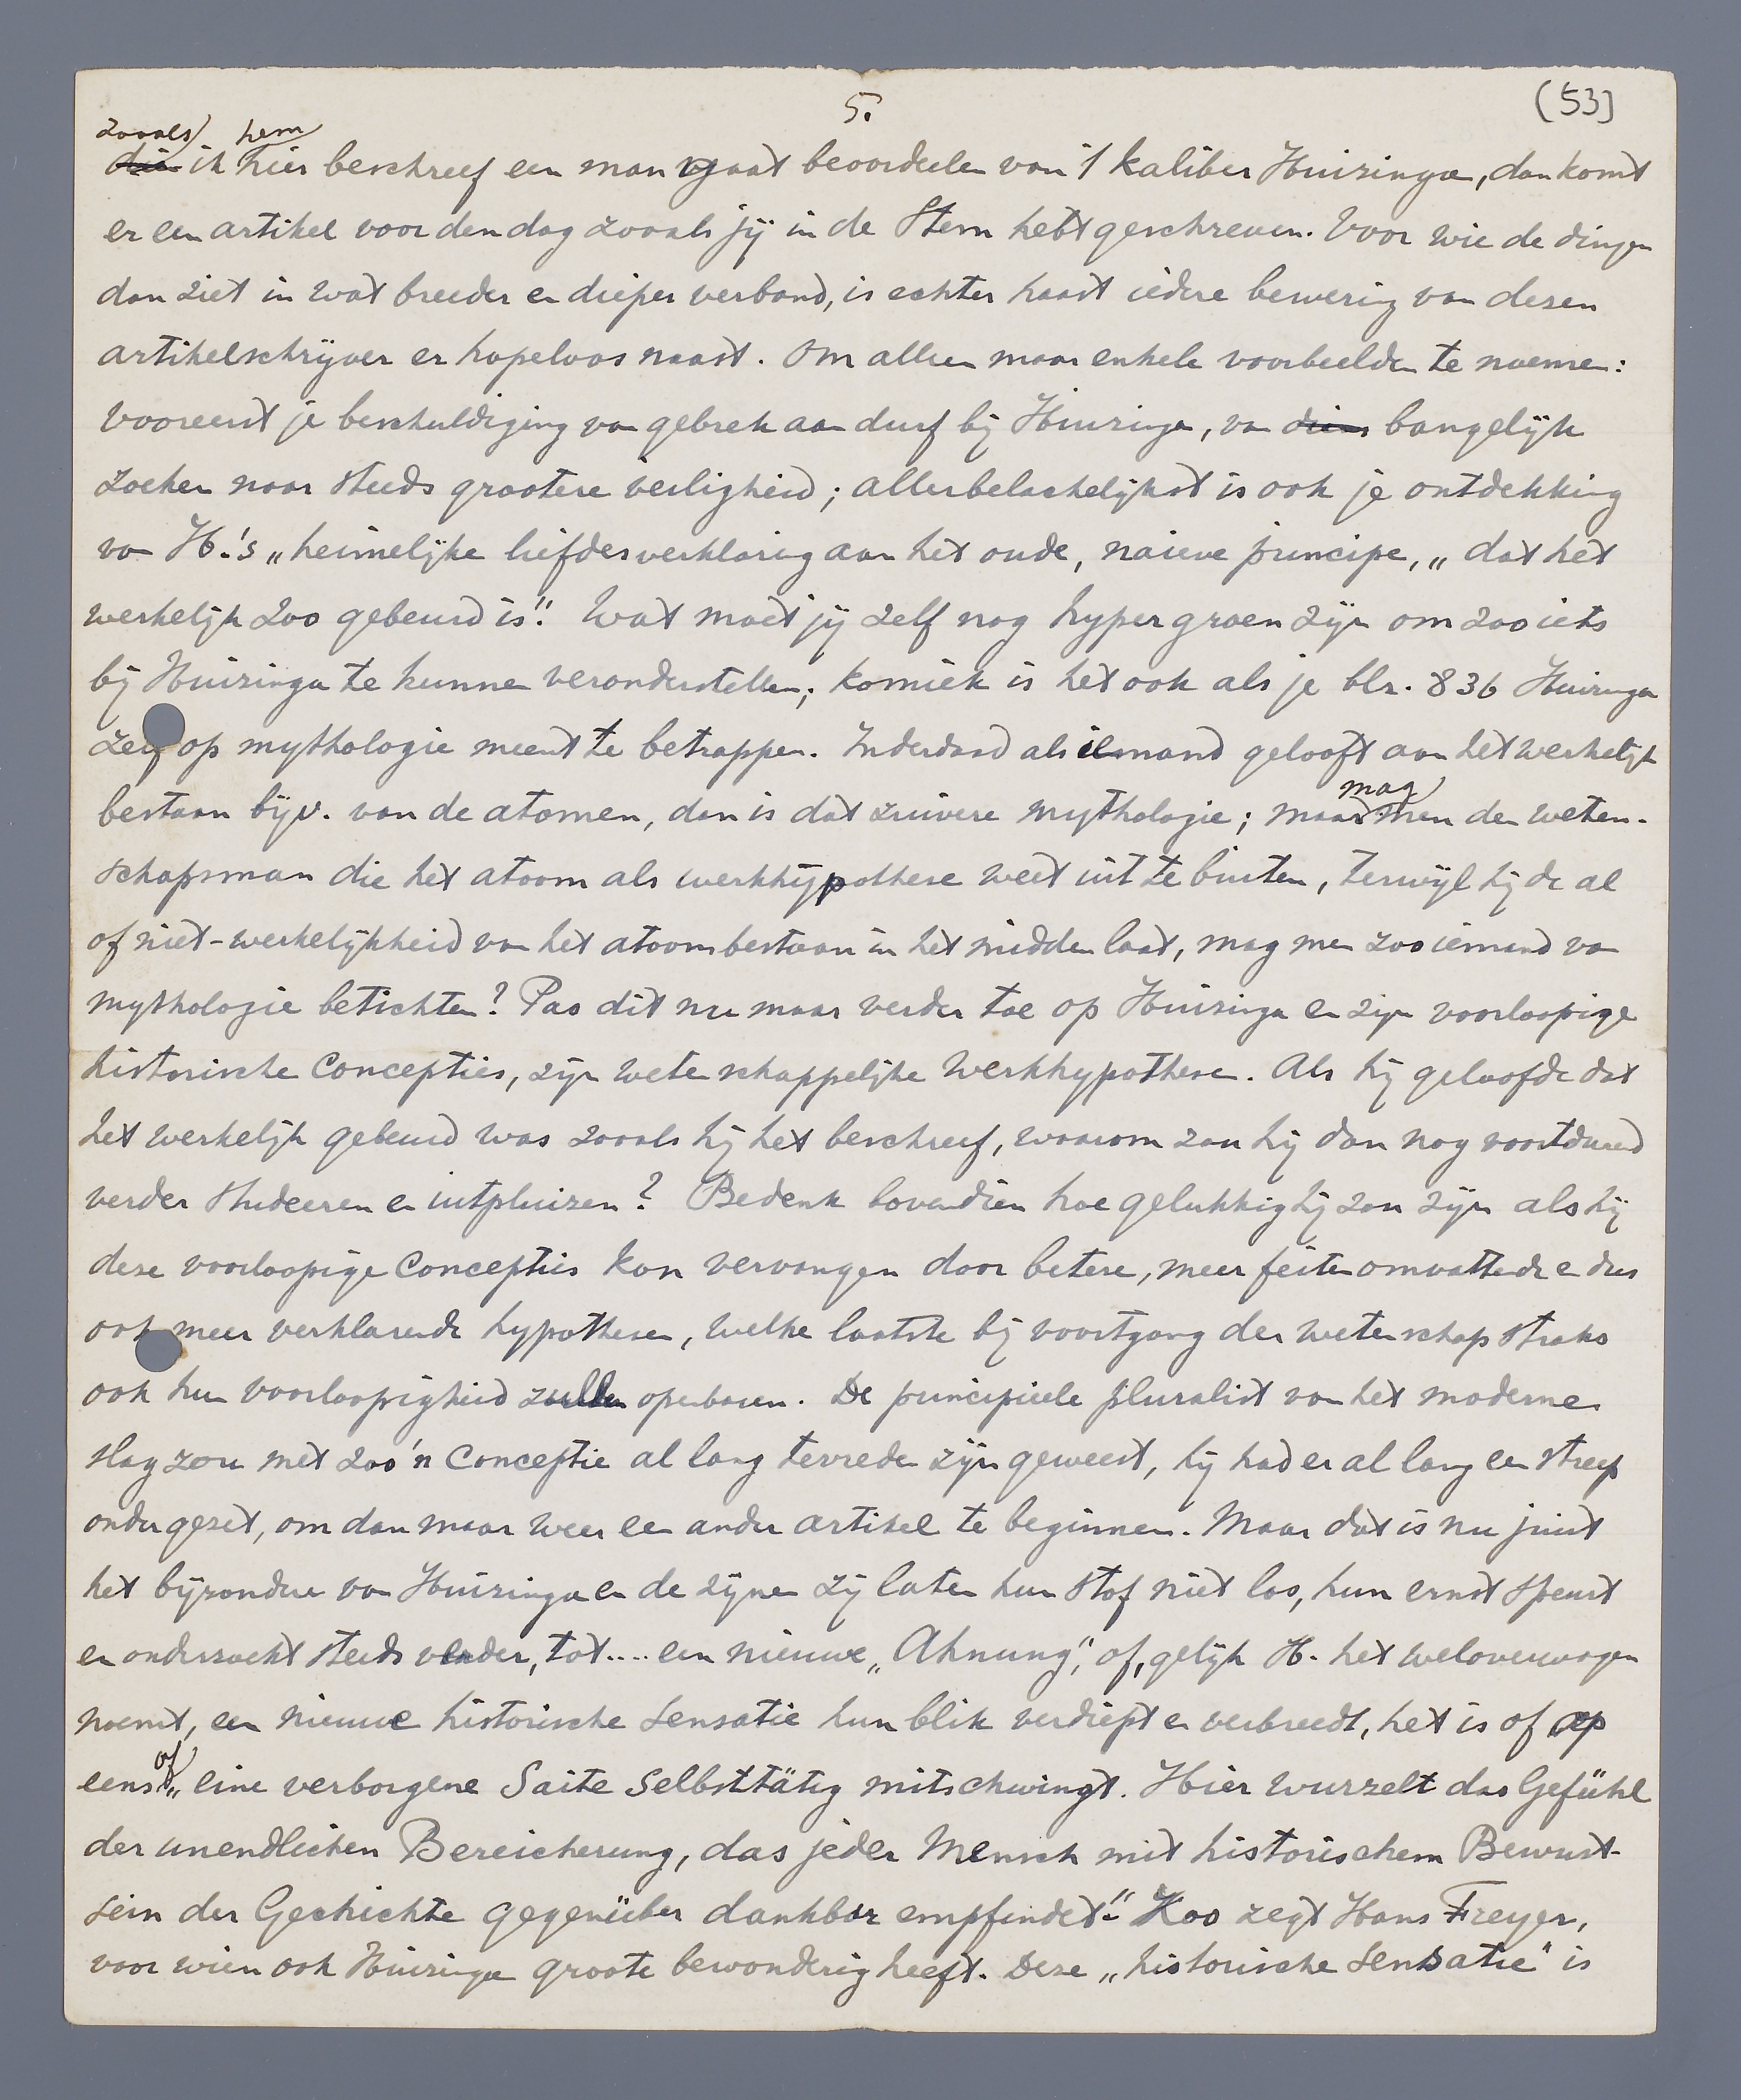 5.
(53)
zooals hem
die ik hier beschreef een man gaat beoordeelen van 't kaliber Huizinga, dan komt
er een artikel voor den dag zooals jij in de Stem hebt geschreven. Voor wie de dingen
dan ziet in wat breeder en dieper verband, is echter haast iedere bewering van dezen
artikelschrijver er hopeloos naast. Om alleen maar enkele voorbeelden te noemen:
vooreerst je beschuldiging van gebrek aan durf bij Huizinga, van diens bangelijk
zoeken naar steeds grootere veiligheid; allerbelachelijkst is ook je ontdekking
van H.'s „heimelijke liefdesverklaring aan het oude, naieve principe, „dat het
werkelijk zoo gebeurd is". Wat moet jij zelf nog hypergroen zijn om zooiets
bij Huizinga te kunnen veronderstellen; komiek is het ook als je blz. 836 Huizinga
zelf op mythologie meent te betrappen. Inderdaad als iemand gelooft aan het werkelijk
mag
bestaan bijv. van de atomen, dan is dat zuivere mythologie; maar men den weten-
schapsman die het atoom als werkhypothese weet uit te buiten, terwijl hij de al
of niet-werkelijkheid van het atoombestaan in het midden laat, mag men zoo iemand van
mythologie betichten? Pas dit nu maar verder toe op Huizinga en zijn voorloopige
historische concepties, zijn wetenschappelijke werkhypothesen. Als hij geloofde dat
het werkelijk gebeurd was zooals hij het beschreef, waarom zou hij dan nog voortdurend
verder studeeren en uitpluizen? Bedenk bovendien hoe gelukkig hij zou zijn als hij
deze voorloopige concepties kon vervangen door betere, meer feiten omvattende en dus
ook meer verklarende hypothesen, welke laatste bij voortgang der wetenschap straks
ook hun voorloopigheid zullen openbaren. De principieele pluralist van het moderne
slag zou met zoo'n conceptie al lang tevreden zijn geweest, hij had er al lang een streep
onder gezet, om dan maar weer een ander artikel te beginnen. Maar dat is nu juist
het bijzondere van Huizinga en de zijnen zij laten hun stof niet los, hun ernst speurt
en onderzoekt steeds verder, tot.... een nieuwe „Ahnung", of, gelijk H. het weloverwogen
noemt, een nieuwe historische sensatie hun blik verdiept en verbreedt, het is of op
of
eens „eine verborgene Saite selbsttätig mitschwingt. Hier wurzelt das Gefühl
der unendlichen Bereicherung, das jeder Mensch mit historischem Bewust-
sein der Geschichte gegenüber dankbar empfindet". Zoo zegt Hans Freyer,
voor wien ook Huizinga groote bewondering heeft. Deze „historische sensatie" is